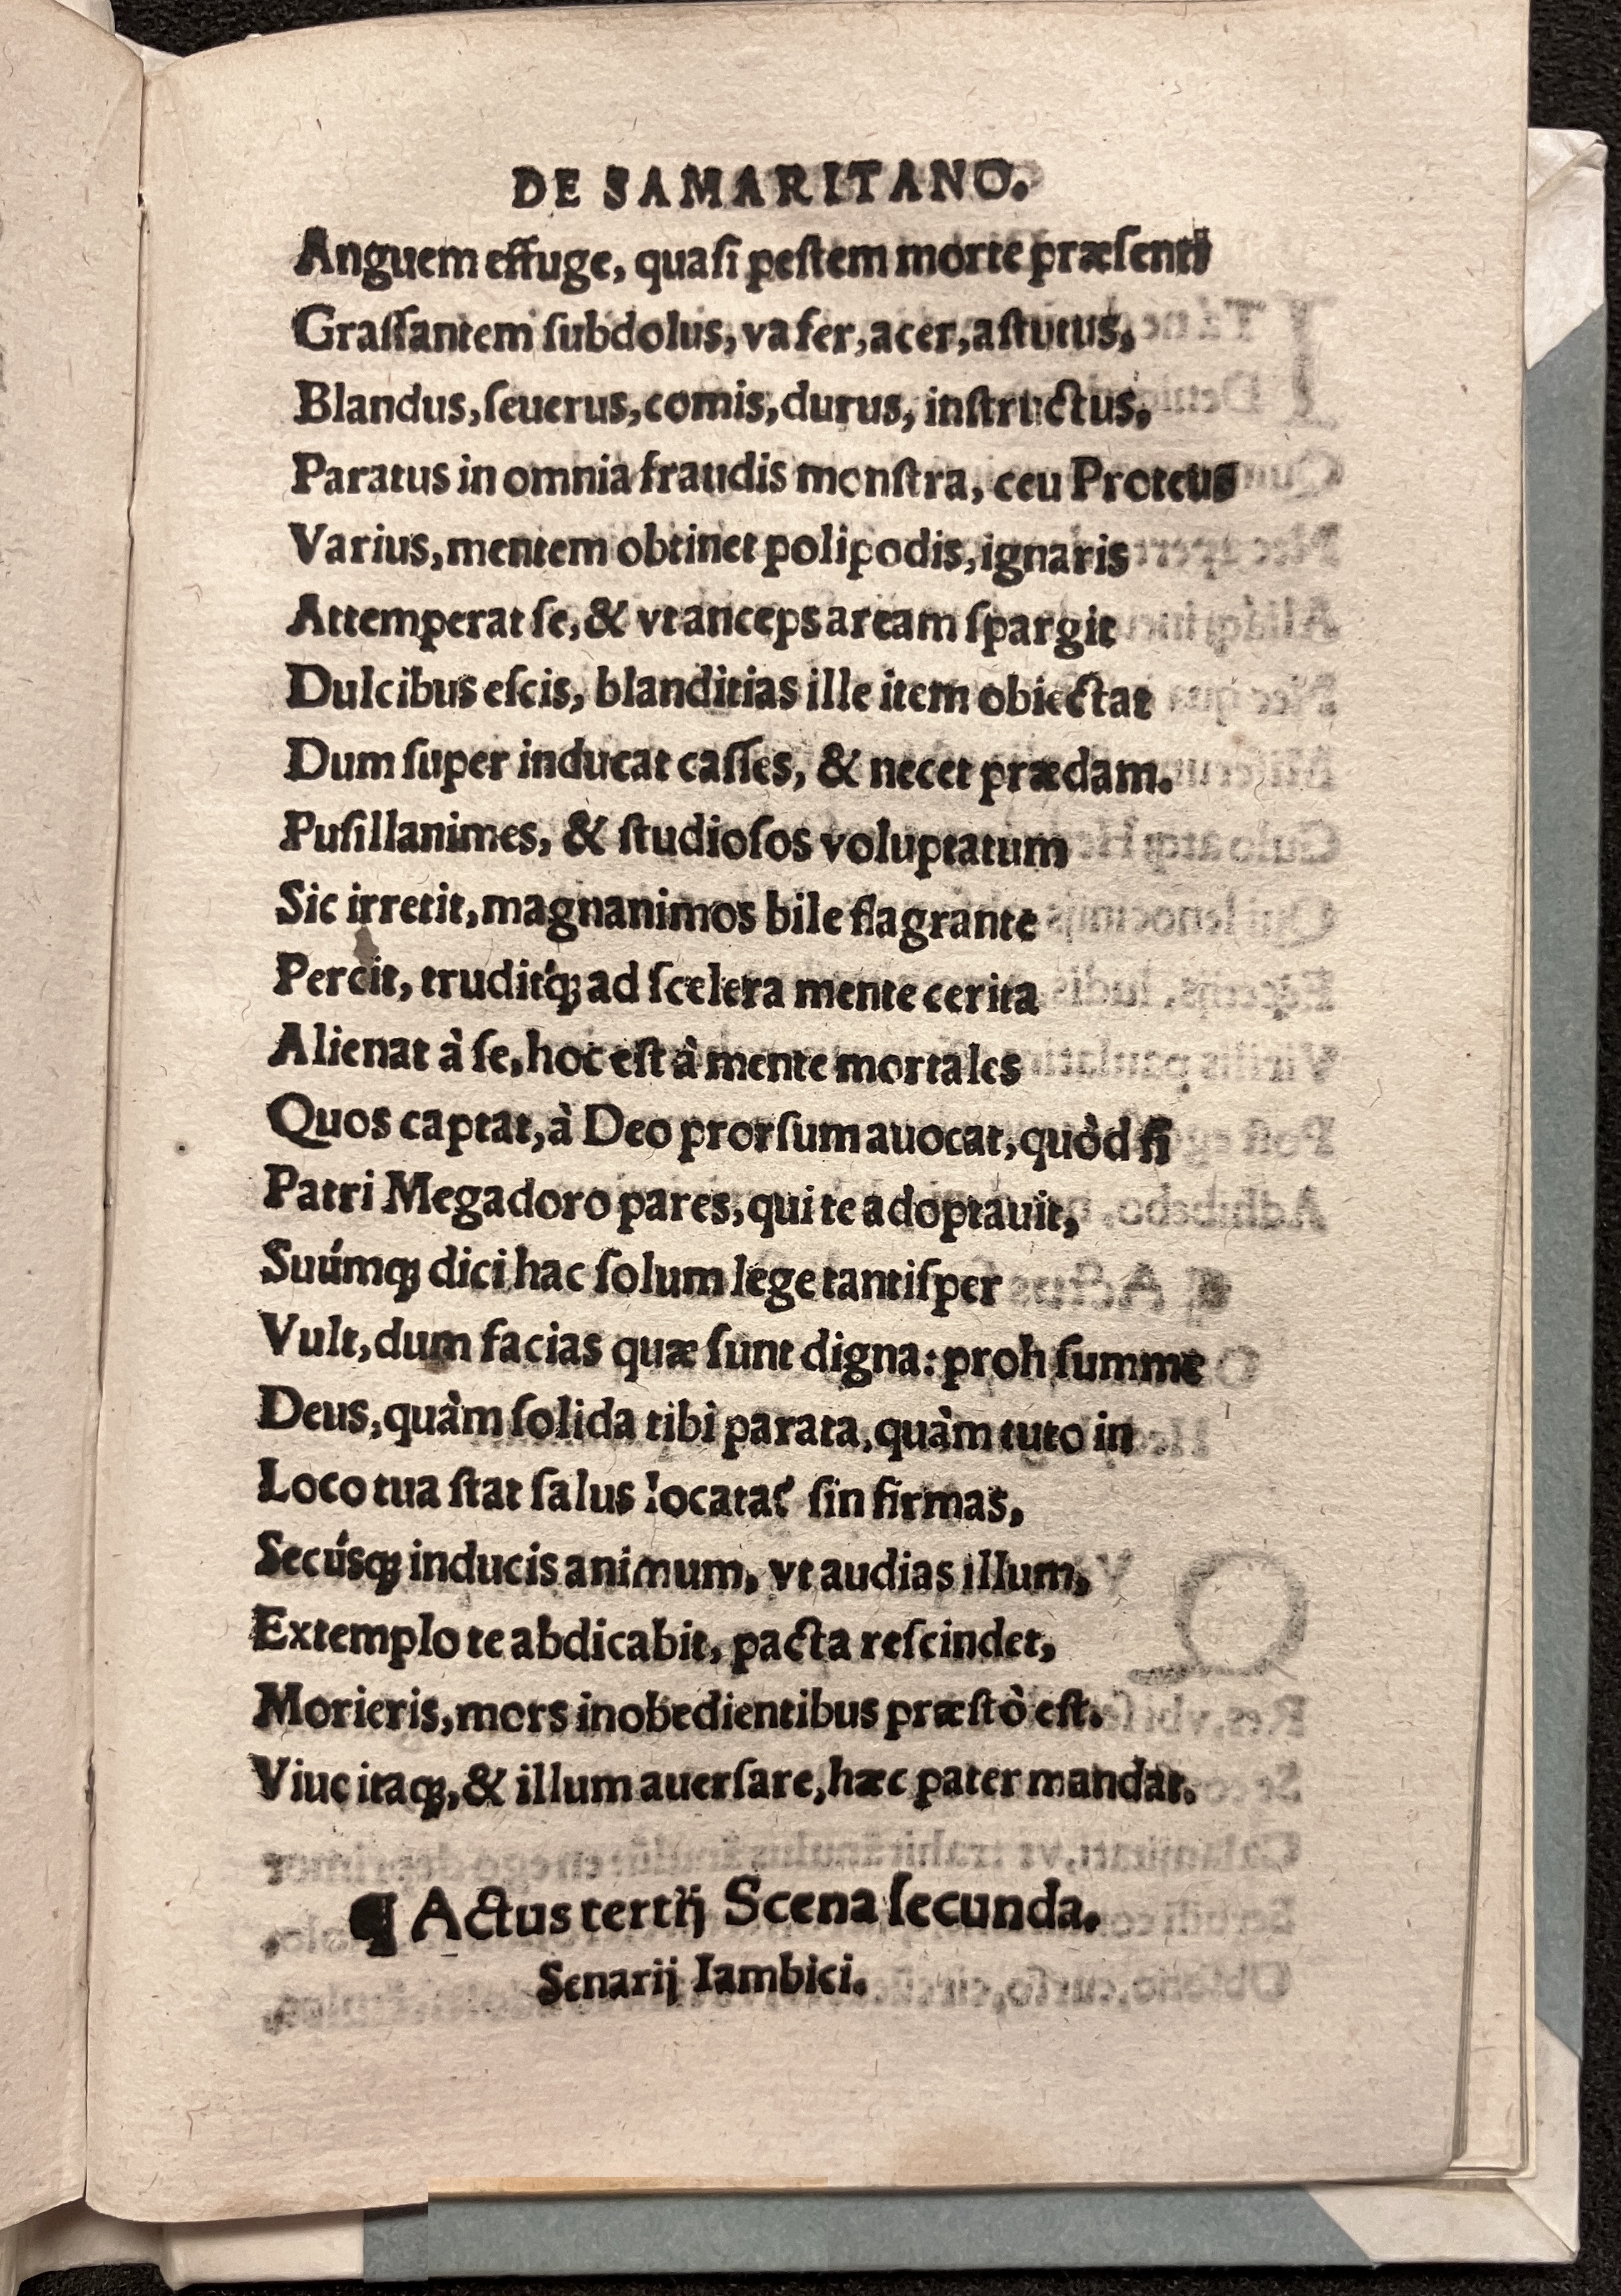 DE SAMARITANO.
Anguem effuge, quaſi peſtem morte præſenti
Graſſantem ſubdolus, vafer, acer, aſtutus,
Blandus, ſeuerus, comis, durus, inſtructus,
Paratus in omnia fraudis monſtra, ceu Proteus
Varius, mentem obtinet polipodis, ignaris
Attemperat ſe, & vt anceps aream ſpargit
Dulcibus eſcis, blanditias ille item obiectat
Dum ſuper inducat caſſes, & necet prædam.
Puſillanimes, & ſtudioſos voluptatum
Sic irretit, magnanimos bile flagrante
Percit, truditq́; ad ſcelera mente cerita
Alienat à ſe, hoc eſt à mente mortales
Quos captat, à Deo prorſum auocat, quòd ſi
Patri Megadoro pares, qui te adoptauit,
Suúmq; dici hac ſolum lege tantiſper
Vult, dum facias quæ ſunt digna: proh ſumme
Deus, quàm ſolida tibi parata, quàm tuto in
Loco tua ſtat ſalus locata? ſin firmas,
Secúsq; inducis animum, vt audias illum,
Extemplo te abdicabit, pacta reſcindet,
Morieris, mors inobedientibus præſtò eſt.
Viue itaq;, & illum auerſare, hæc pater mandat.
¶ Actus tertij Scena ſecunda.
Senarij Iambici.